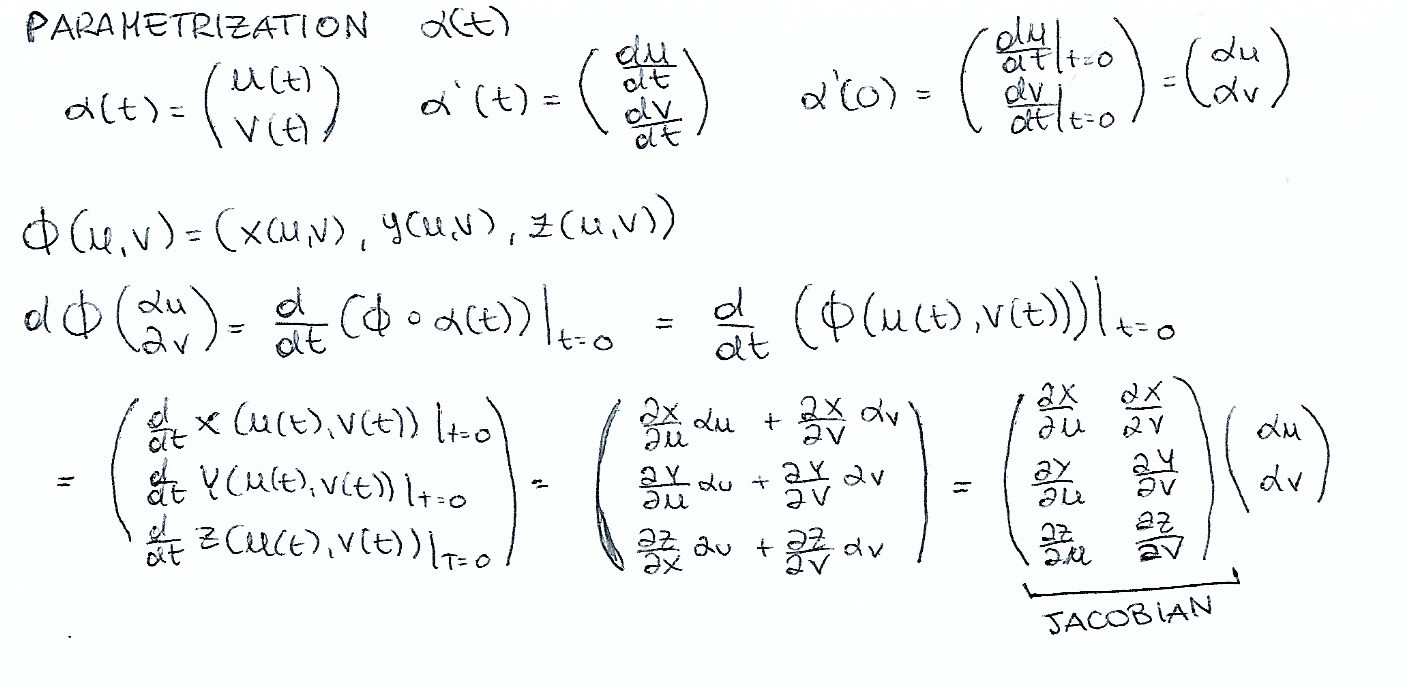 PARAMETRIZATION α(t)
α(t) = (u(t) / v(t))   α'(t) = (du/dt / dv/dt)   α'(0) = (du/dt|t=0 / dv/dt|t=0) = (αu / αv)
ϕ(u,v) = (x(u,v), y(u,v), z(u,v))
dϕ(αu / ∂v) = d/dt (ϕ∘α(t))|t=0 = d/dt (ϕ(u(t),v(t)))|t=0
= (d/dt x(u(t),v(t))|t=0 / d/dt Y(u(t),v(t))|t=0 / d/dt z(u(t),v(t))|T=0) = (∂x/∂u αu + ∂x/∂v αv / ∂Y/∂u αu + ∂Y/∂v αv / ∂z/∂x ∂u + ∂z/∂v αv) = (∂x/∂u ∂x/∂v / ∂Y/∂u ∂Y/∂v / ∂z/∂u ∂z/∂v)(αu / αv)
JACOBIAN